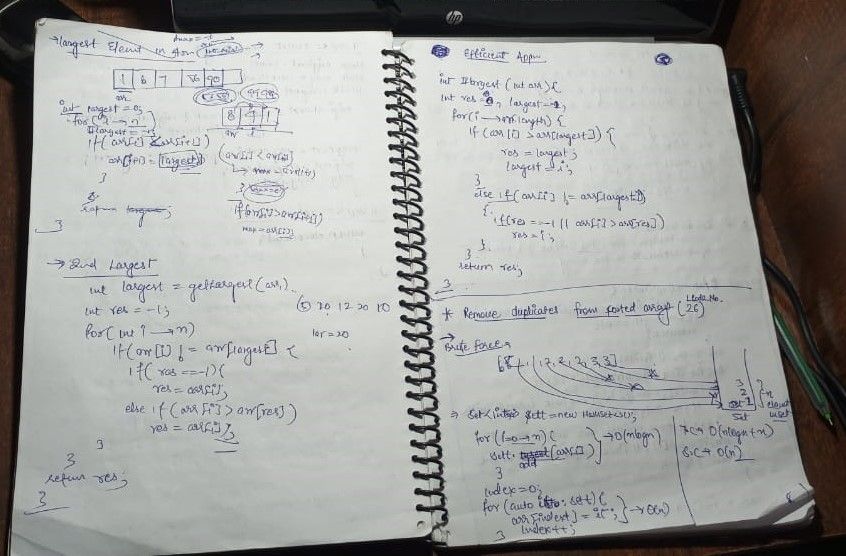 hp
→ Largest Element in
max = -1
1 6 7 56 90
arr
int largest = 0;
for(i → n)
if( arr[i] < arr[i+1])
arr[i+1] = largest;
}
return largest;
}
8 9 1
(arr[i] < arr[i+1]
→ max = arr[i+1]
if(arr[i] > arr[i+1])
max = arr[i]
→ 2nd Largest
int largest = getLargest(arr);
int res = -1;
for( int i → n)
if(arr[i] != arr[largest] {
if( res == -1) {
res = arr[i];
else if( arr[i] > arr[res])
res = arr[i];
}
}
return res;
}
(5) 20 12 20 10
lar = 20
Efficient Appr
int IIlargest (int arr) {
int res = largest =
for(i → arr.length) {
if( arr[i] > arr[largest]) {
res = largest;
largest = i;
}
else if( arr[i] != arr[largest])
{
if( res == -1 || arr[i] > arr[res])
res = i;
}
}
return res;
}
* Remove duplicates from sorted arrays (26)
→ Brute force
1, 2, 2, 3, 3]
3
2
1
set
n element in set
⇒ Set<int> sett = new HashSet<>();
for(i=0 → n) {
sett. add (arr[i])
}
→ O(nlogn)
index = 0;
for (auto : set) {
arr[index] = i;
index++;
}
→ O(n)
T.C → O(nlogn + n)
S.C → O(n)